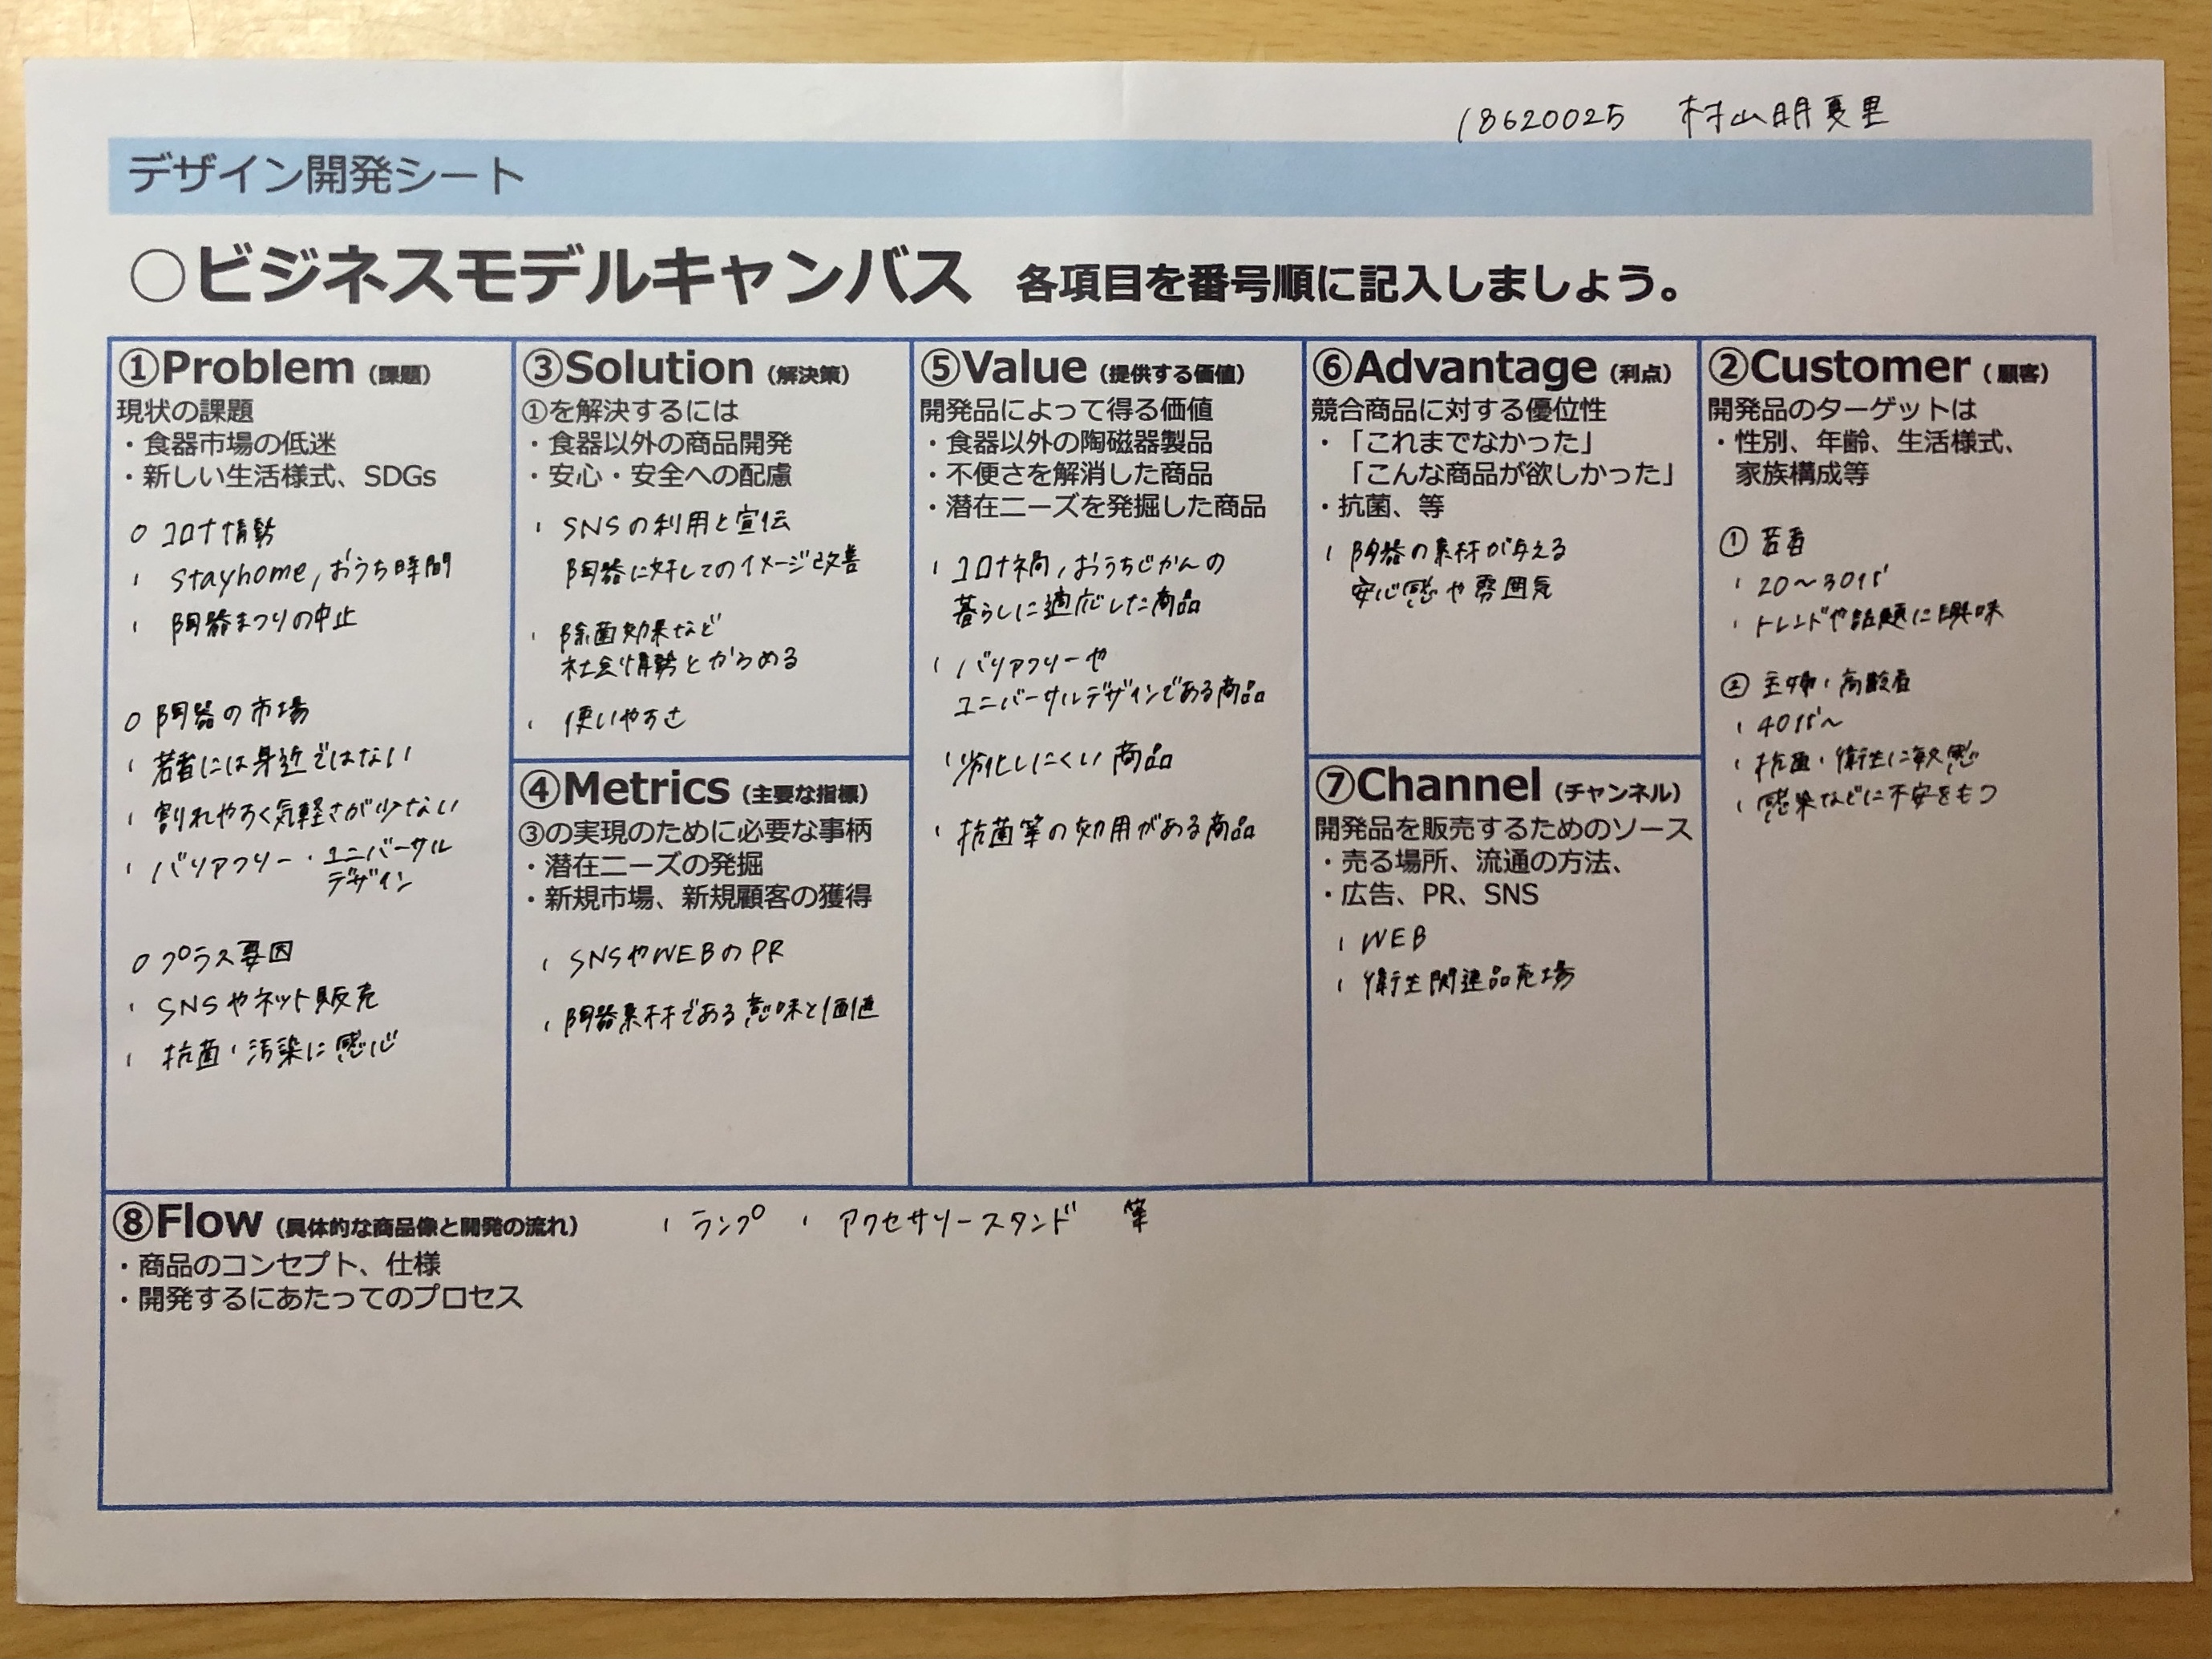 18620025 村山明夏里
デザイン開発シート
○ビジネスモデルキャンバス 各項目を番号順に記入しましょう。
①Problem（課題）
現状の課題
・食器市場の低迷
・新しい生活様式、SDGs
○ コロナ情勢
・ stayhome, おうち時間
・ 陶器まつりの中止
○ 陶器の市場
・ 若者には身近ではない
・ 割れやすく気軽さが少ない
・ バリアフリー・ユニバーサル
デザイン
○ プラス要因
・ SNSやネット販売
・ 抗菌・汚染に感心
③Solution（解決策）
①を解決するには
・食器以外の商品開発
・安心・安全への配慮
・ SNSの利用と宣伝
陶器に対してのイメージ改善
・ 除菌効果など
社会情勢とからめる
・ 使いやすさ
④Metrics（主要な指標）
③の実現のために必要な事柄
・潜在ニーズの発掘
・新規市場、新規顧客の獲得
・ SNSやWEBのPR
・ 陶器素材である意味と価値
⑤Value（提供する価値）
開発品によって得る価値
・食器以外の陶磁器製品
・不便さを解消した商品
・潜在ニーズを発掘した商品
・ コロナ禍, おうちじかんの
暮らしに適応した商品
・ バリアフリーや
ユニバーサルデザインである商品
・ 劣化しにくい商品
・ 抗菌等の効用がある商品
⑥Advantage（利点）
競合商品に対する優位性
・「これまでなかった」
「こんな商品が欲しかった」
・抗菌、等
・ 陶器の素材が与える
安心感や雰囲気
⑦Channel（チャンネル）
開発品を販売するためのソース
・売る場所、流通の方法、
・広告、PR、SNS
・ WEB
・ 衛生関連品売場
②Customer（顧客）
開発品のターゲットは
・性別、年齢、生活様式、
家族構成等
① 若者
・ 20〜30代
・ トレンドや話題に興味
② 主婦・高齢者
・ 40代〜
・ 抗菌・衛生に敏感
・ 感染などに不安をもつ
⑧Flow（具体的な商品像と開発の流れ） ・ ランプ ・ アクセサリースタンド 等
・商品のコンセプト、仕様
・開発するにあたってのプロセス